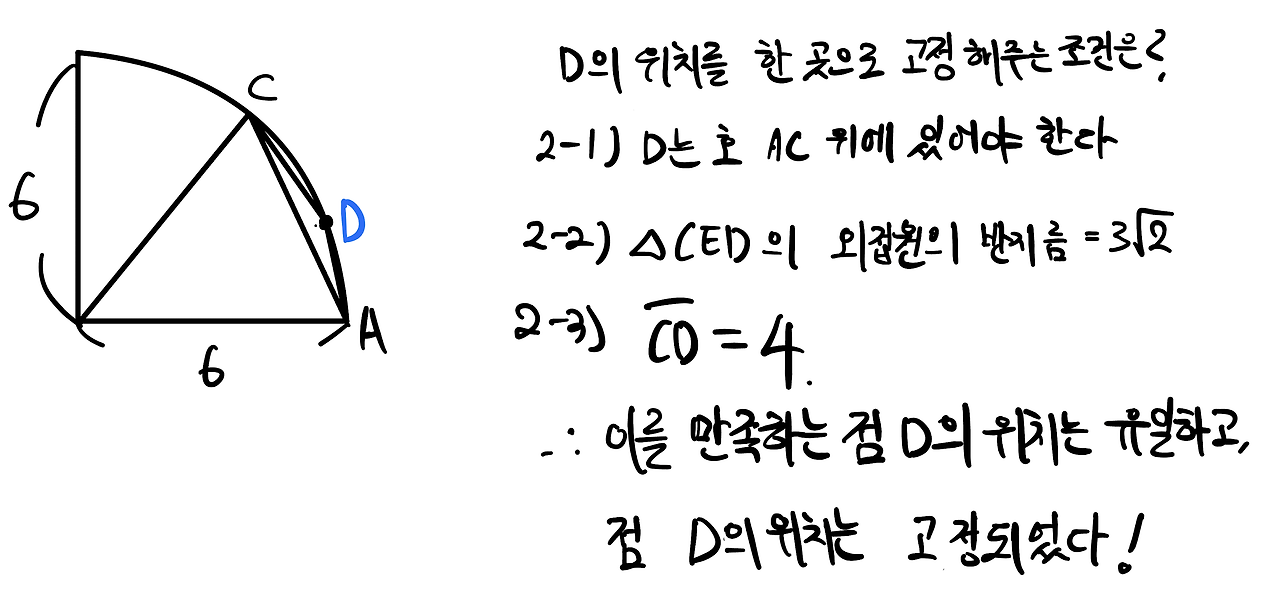 C
D
6
A
6
D의 위치를 한 곳으로 고정해주는 조건은?
2-1) D는 호 AC 위에 있어야 한다
2-2) △CED의 외접원의 반지름 = 3√2
2-3) C̅D̅ = 4.
∴ 이를 만족하는 점 D의 위치는 유일하고,
점 D의 위치는 고정되었다!